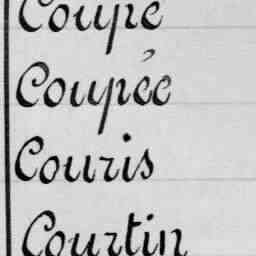 Coupé
Coupée
Couris
Courtin